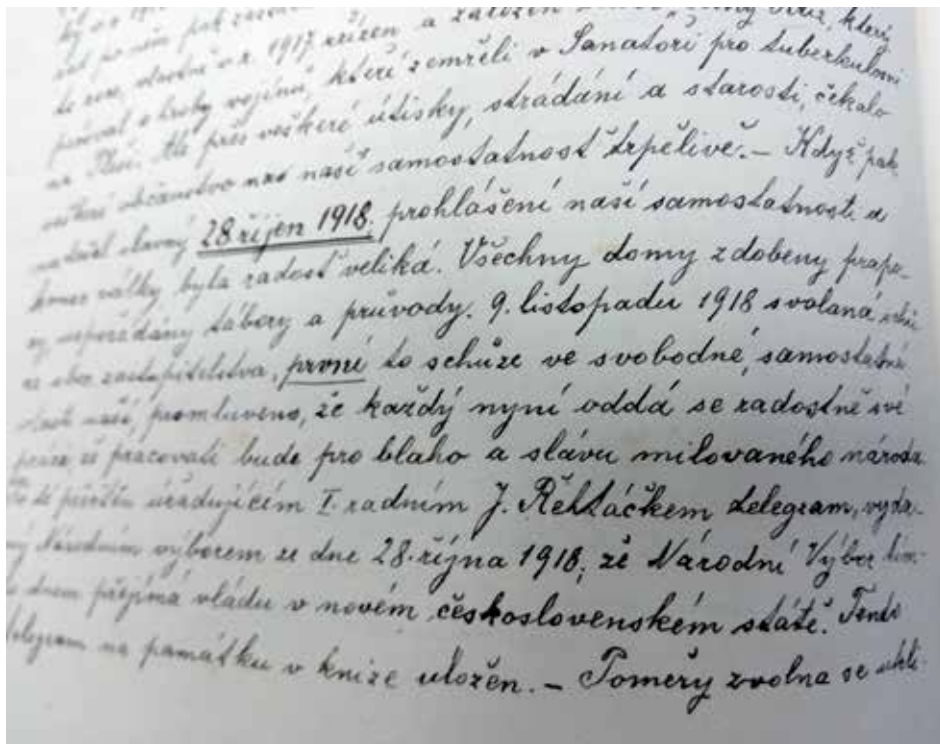 který
v r. 1917 zřízen a založen
pečoval o hroby vojínů, kteří zemřeli v Sanatoři pro tuberkulosní
na Pleši. Ale přes veškeré útisky, strádání a starosti, čekalo
veškeré občanstvo na naší samostatnost trpělivě. – Když pak
nadešel slavný 28 říjen 1918, prohlášení naší samostatnosti a
konec války byla radost veliká. Všechny domy zdobeny prapo-
ry, uspořádány tábory a průvody. 9. listopadu 1918 svolaná schů-
ze obec. zastupitelstva, první to schůze ve svobodné, samostatné
vlasti naší, promluveno, že každý nyní oddá se radostně své
práci, že pracovati bude pro blaho a slávu milovaného národa.
úřadujícím I. radním J. Řehtáčkem telegram, vyda-
ný Národním výborem ze dne 28. října 1918, že Národní Výbor tím-
to dnem přejímá vládu v novém československém státě. Tento
telegram na památku v knize uložen. – Poměry zvolna se uhli-